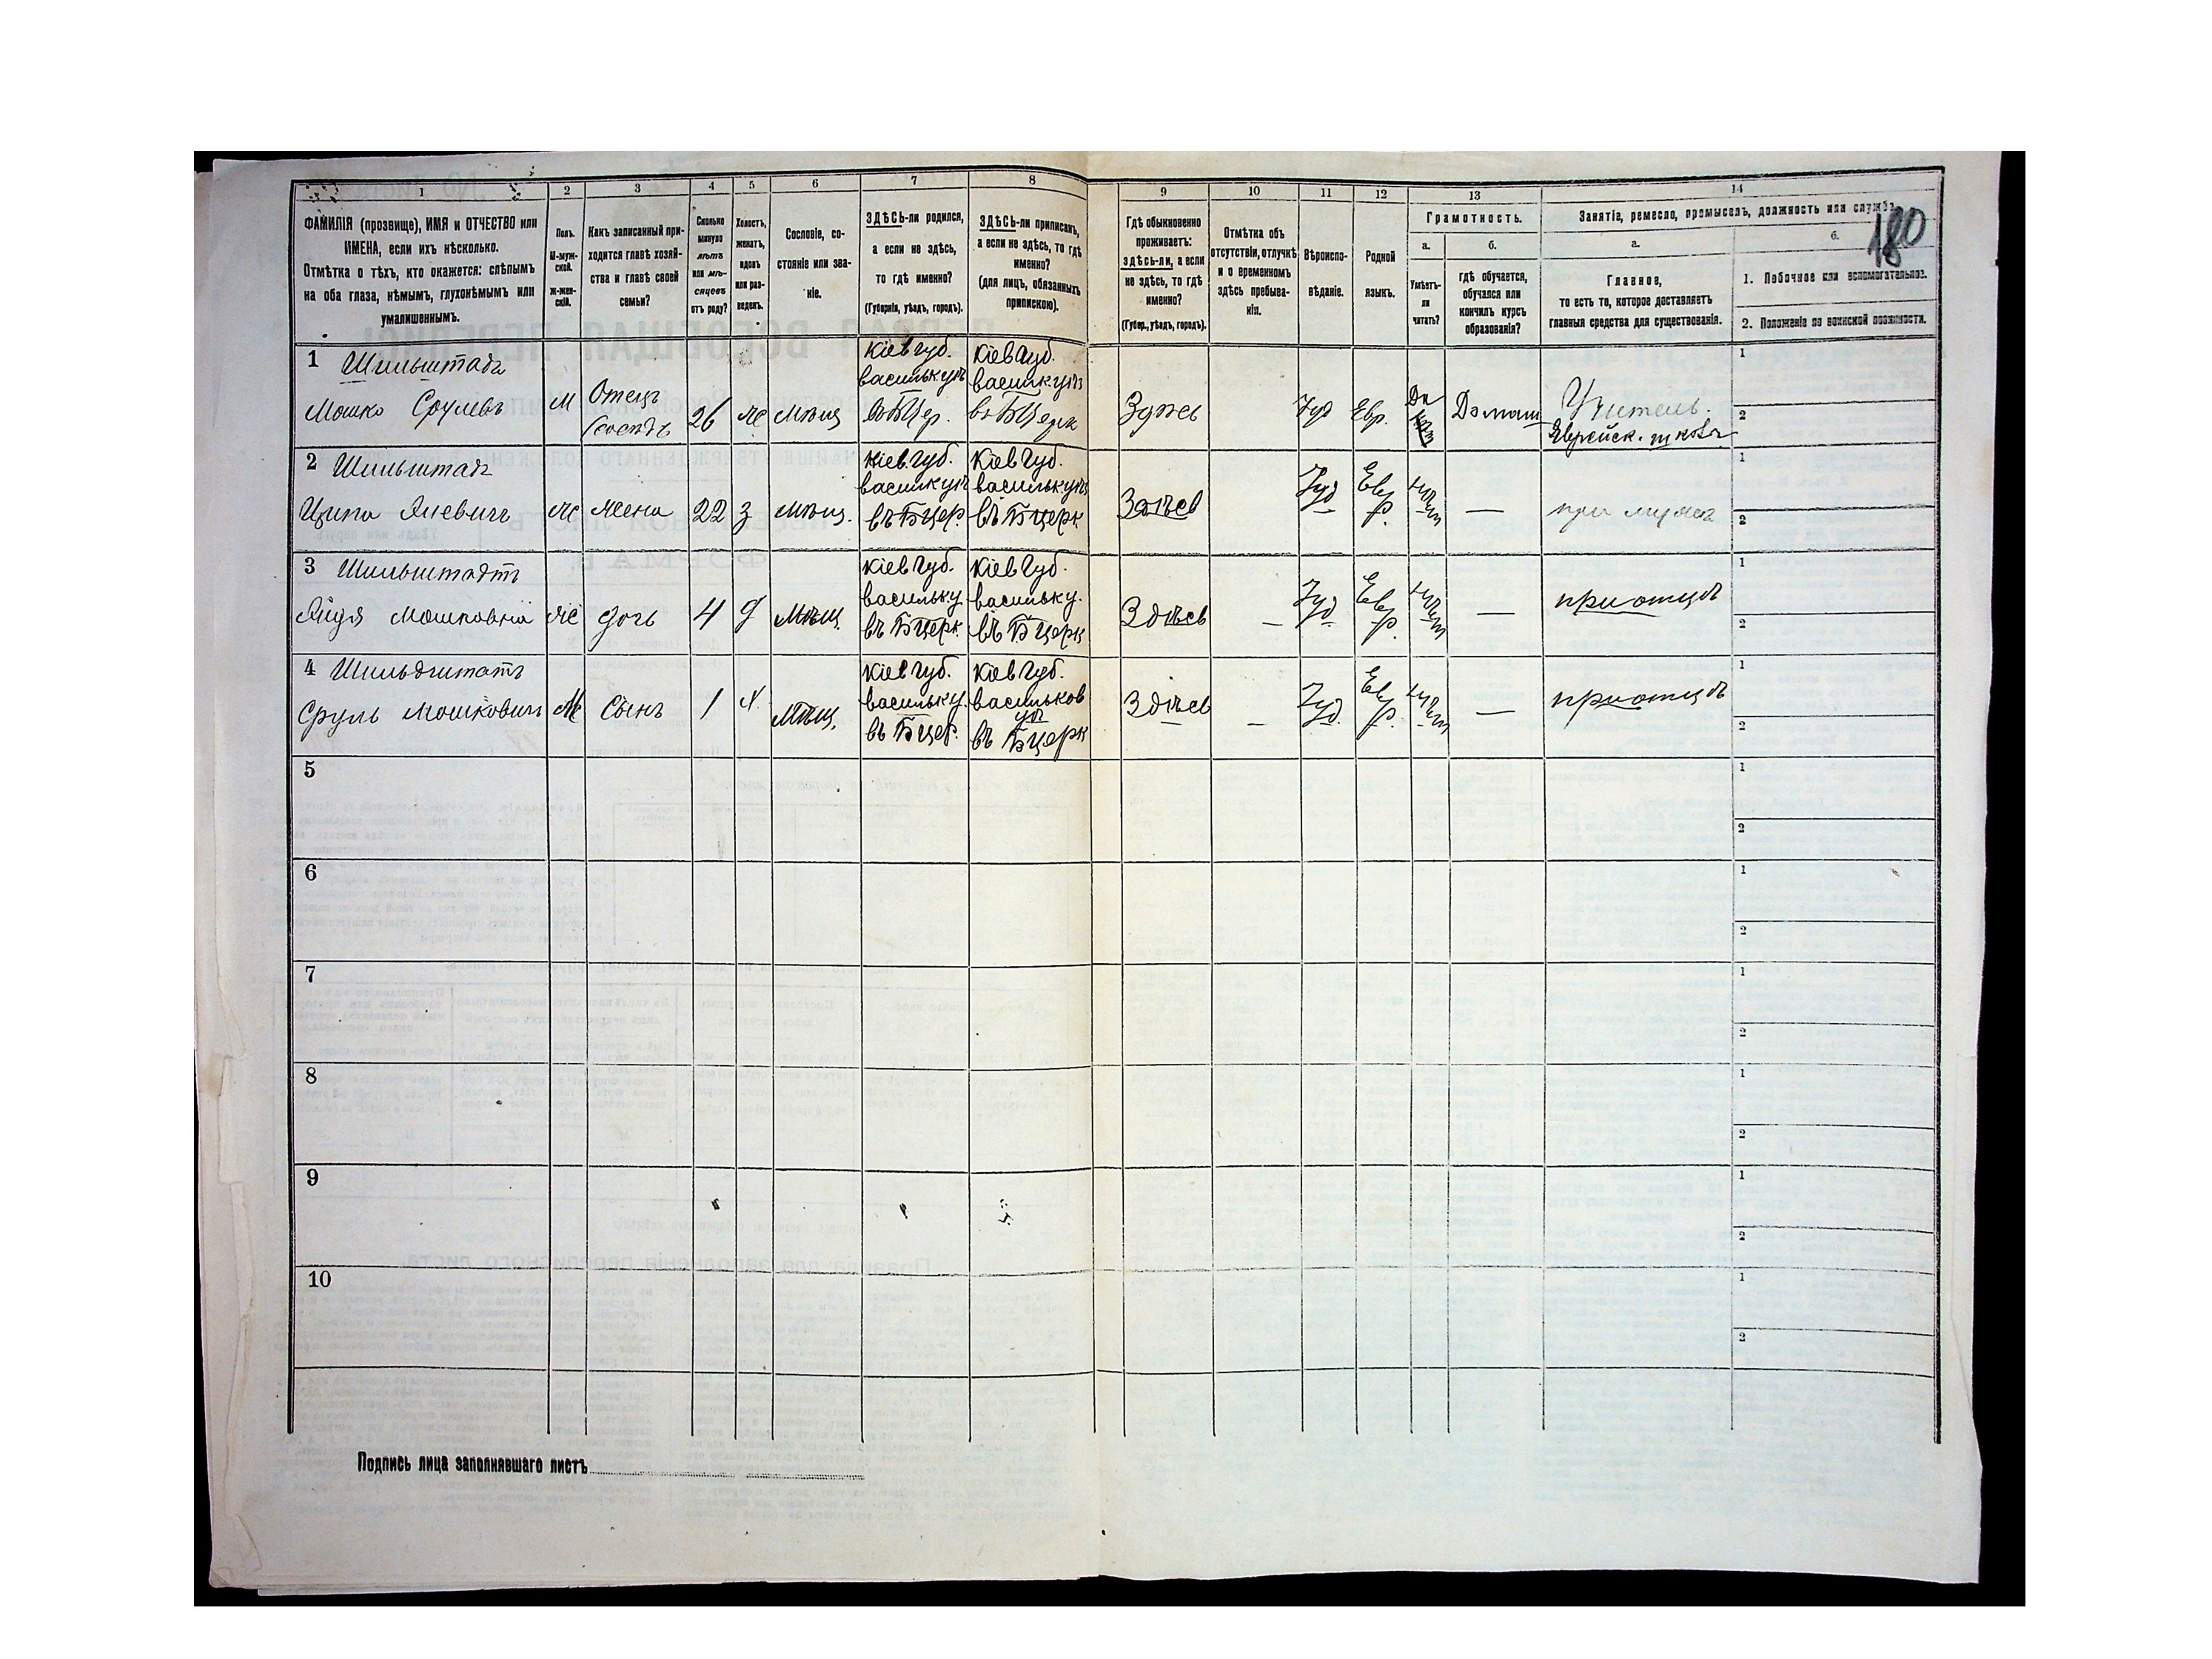 180
1
2
3
4
5
6
7
8
9
10
11
12
13
14
ФАМИЛІЯ (прозвище), ИМЯ и ОТЧЕСТВО или
ИМЕНА, если ихъ нѣсколько.
Отмѣтка о тѣхъ, кто окажется: слѣпымъ
на оба глаза, нѣмымъ, глухонѣмымъ или
умалишеннымъ.
Полъ.
М-муж-
ской.
ж-жен-
скій.
Какъ записанный при-
ходится главѣ хозяй-
ства и главѣ своей
семьи?
Сколько
минуло
лѣтъ
или мѣ-
сяцевъ
отъ роду?
Холостъ,
женатъ,
вдовъ
или раз-
веденъ.
Сословіе, со-
стояніе или зва-
ніе.
ЗДѢСЬ-ли родился,
а если не здѣсь,
то гдѣ именно?
(Губернія, уѣздъ, городъ).
ЗДѢСЬ-ли приписанъ,
а если не здѣсь, то гдѣ
именно?
(для лицъ, обязанныхъ
припискою).
Гдѣ обыкновенно
проживаетъ:
здѣсь-ли, а если
не здѣсь, то гдѣ
именно?
(Губер., уѣздъ, городъ).
Отмѣтка объ
отсутствіи, отлучкѣ
и о временномъ
здѣсь пребыва-
ніи.
Вѣроиспо-
вѣданіе.
Родной
языкъ.
Грамотность.
а.
Умѣетъ-
ли
читать?
б.
гдѣ обучается,
обучался или
кончилъ курсъ
образованія?
Занятіе, ремесло, промыселъ, должность или служба.
а.
Главное,
то есть то, которое доставляетъ
главныя средства для существованія.
б.
1. Побочное или вспомогательное.
2. Положеніе по воинской повинности.
1 Шильштадъ
Мошко Срулевъ
М
Отецъ
26
же
Мѣщ
Кіев губ.
Кіев губ.
Здѣсь
Іуд
Евр.
Да
Домаш
Учитель.
Еврейск. школы
1
2
2 Шильштадъ
Ципа
же
жена
22
З
мѣщ.
Кіев. губ.
въ Бцер.
Кіев губ.
въ Бцерк
Здѣсь
Іуд
Евр.
нѣт
—
при мужѣ
1
2
3 Шильштадтъ
дочь
4
д
Мѣщ.
Кіев губ.
васильку.
въ Бцерк.
Кіев губ.
васильку.
въ Бцерк
Здѣсь
—
Іуд.
Евр.
нѣт
—
при отцѣ
1
2
4 Шильдштатъ
Сруль Мошковичъ
М
Сынъ
1
х.
Мѣщ.
Кіев губ.
васильку.
въ Бцер.
Кіев губ.
васильков
уѣ
въ Бцерк
Здѣсь
—
Іуд.
Евр.
нѣт
—
при отцѣ
1
2
5
1
2
6
1
2
7
1
2
8
1
2
9
1
2
10
1
2
Подпись лица заполнявшаго листъ